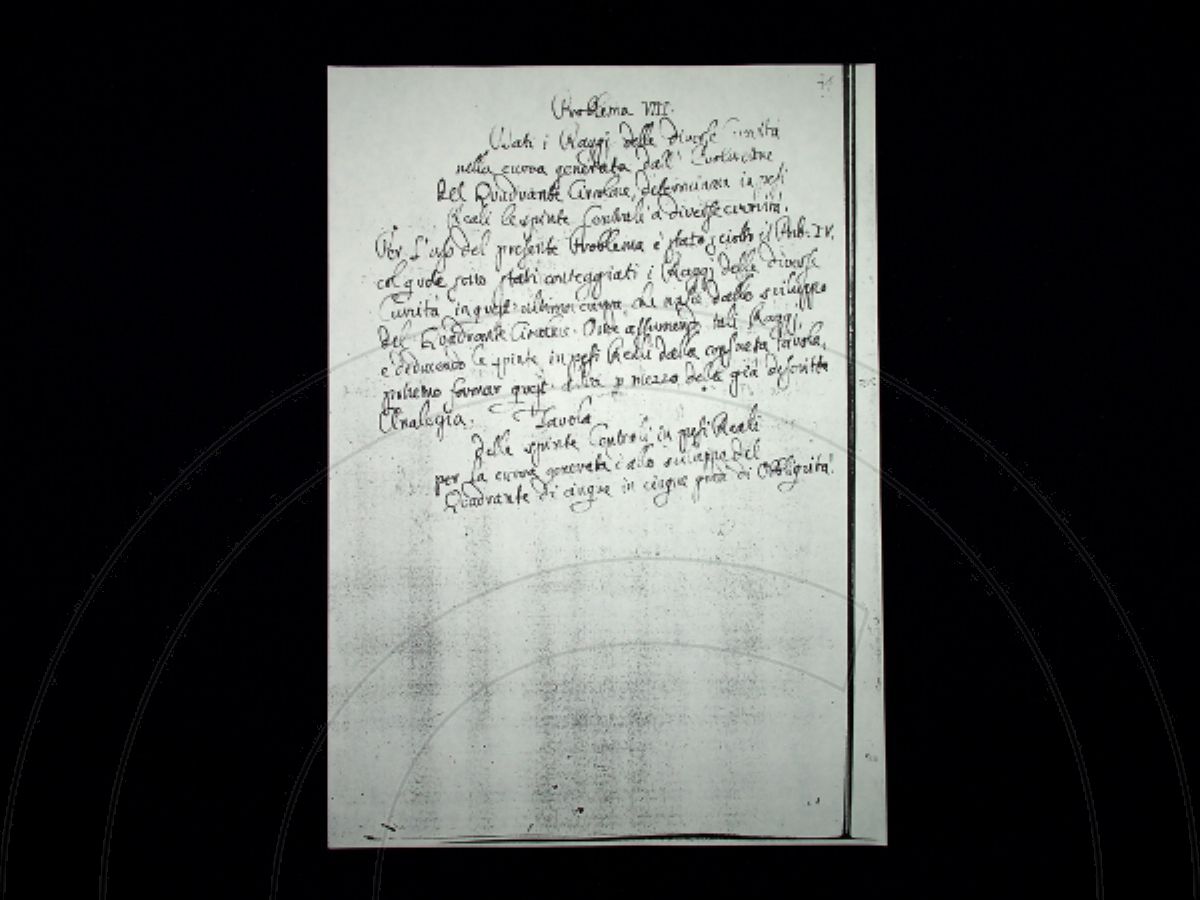 Problema VII.
Dati i Raggi delle diverse Curvità
nella curva generata dall'Evoluzione
del Quadrante Circolare, determinare in pesi
Reali le spinte Centrali a diverse curvità.
Per l'uso del presente Problema è stato sciolto il Prob. IV.
col quale sono stati conteggiati i Raggi delle diverse
Curvità in quest'ultima curva, che nasce dallo sviluppo
del Quadrante Circolare. Onde assumendo tali Raggi,
e deducendo le spinte in pesi Reali dalla consueta Tavola,
potremo formar quest'altra p mezzo della già descritta
Analogia.
Tavola
Delle spinte Centrali in pesi Reali
per la curva generata dallo sviluppo del
Quadrante di cinque in cinque gradi di Obbliquità.